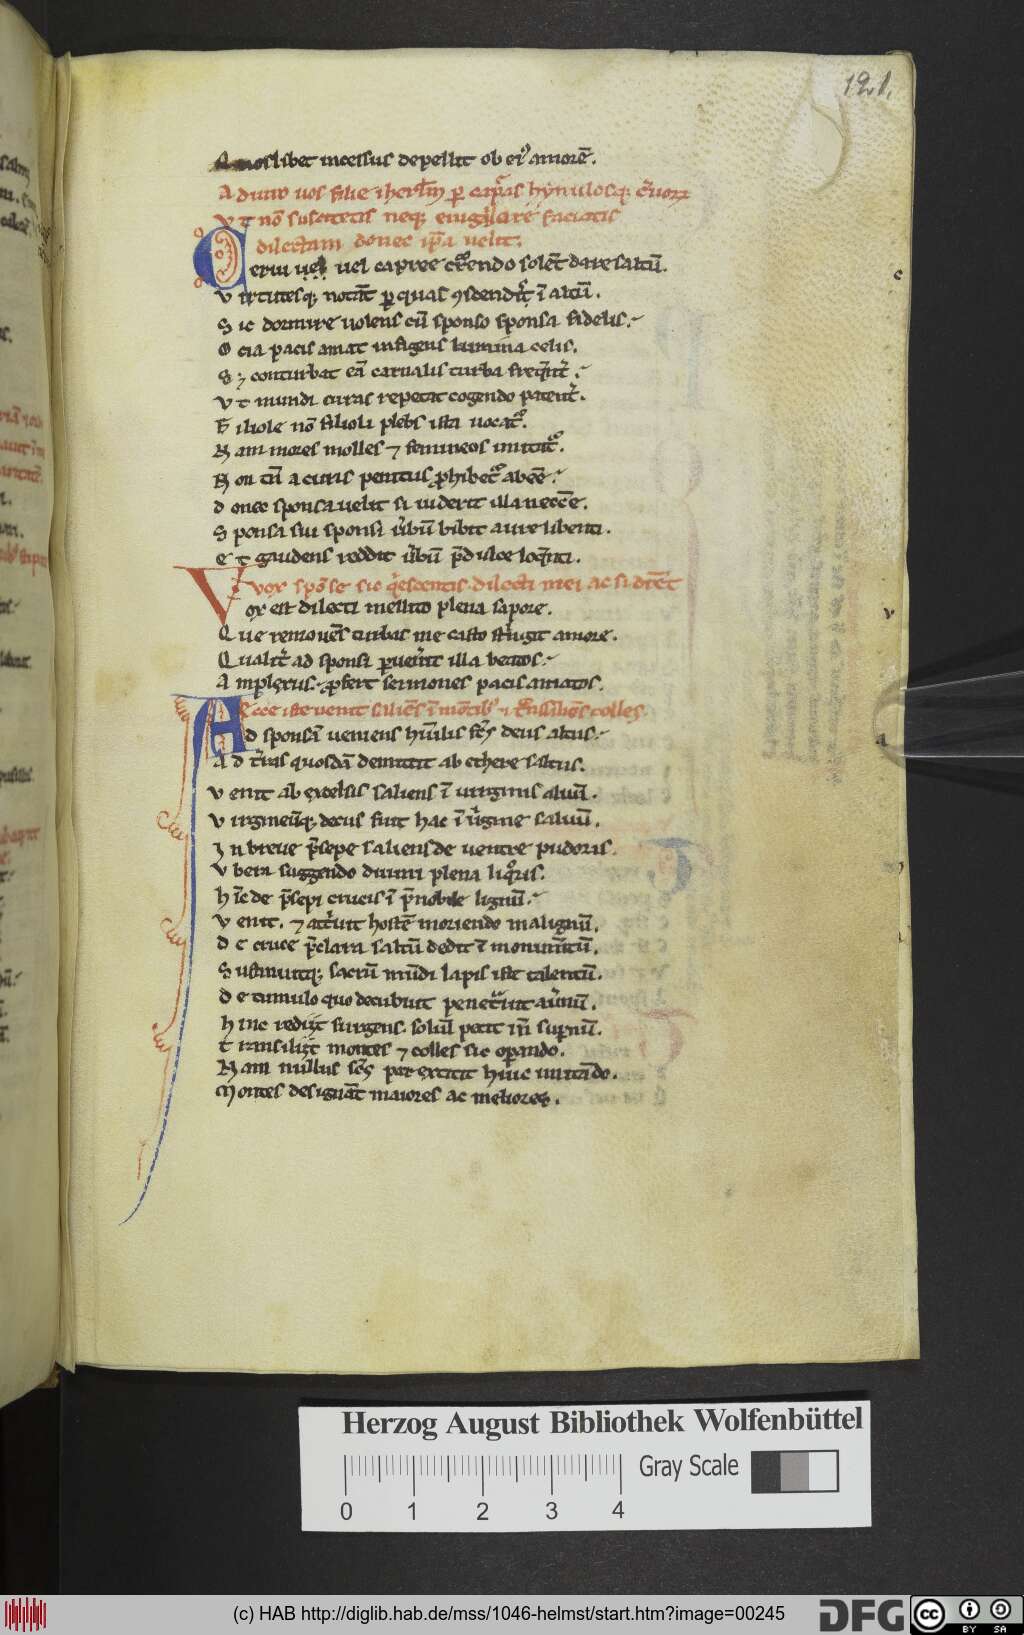 121.
Quoslibet incessus depellit ob ei᷒ amorē.
Adiuro uos filie iherl̄m ꝑ capͣs hynulosq; c̾uoꝝ
Vt nō suscitetis neq; euigilare faciatis
dilectam donec ip̄a uelit;
Cerui uel uel capree cͬrendo solēt dare saltū.
Virtutesq; notāt ꝑ quas ꝯscendit̾ ī altū.
Sic dormire uolens cū sponso sponsa fidelis.
Ocia pacis amat infigens lumina celis.
Sꝫ conturbat eā carnalis turba freq̄nt̾.
Vt mundi curas repetat cogendo patent̾.
Filiole nō filioli plebs ista uocat᷒.
Nam mores molles ⁊ femineos imitat᷒.
Non tn̄ a curis penitus ꝓhibet᷒ abeē.
donec sponsa uelit si uiderit illa necēe.
Sponsa sui sponsi ū̾bū bibit aure libenti.
Et gaudens reddit ū̾bū p̄dulce loq̄nti.
Vvox spōse sic q̇escentis dilecti mei ac si dicēt
ox est dilecti mellito plena sapore.
Que remouēs turbas me casto st̾ngit amore.
Qualit̾ ad sponsi ꝑuen̾it illa beatos.
Amplexus. ꝓfert sermones pacis amatos.
Ecce iste uenit saliēs ī mōtib᷒ ⁊ tͣnsiliēs colles.
Ad sponsā ueniens hūilis fc̄s deus altus.
Ad t̾ras quosdā demittit ab ethere saltus.
Venit ab excelsis saliens ī uirginis aluū.
Virgineūq; decus fuit hac ī ū̾gine saluū.
In breue p̄sepe saliens de uentre pudoris.
Vbera suggendo diuini plena liq̊ris.
hīc de p̄sepi crucis ī p̄nobile lignū.
Venit. ⁊ att̾uit hostē moriendo malignū.
de cruce p̄clara saltū dedit ī monum̄tū.
Sustinuitq; sacrū mūdi lapis iste talentū.
de tumulo quo decubuit penetͣuit au̾nū.
hinc rediit surgens. soliū petit in̄ supnū.
tͣnsiliit montes ⁊ colles sic oꝑando.
Nam nullus sc̄s par extitit huic imitādo.
Montes designāt maiores ac meliores.
Herzog August Bibliothek Wolfenbüttel
0 1 2 3 4
Gray Scale
(c) HAB http://diglib.hab.de/mss/1046-helmst/start.htm?image=00245
DFG
cc BY SA